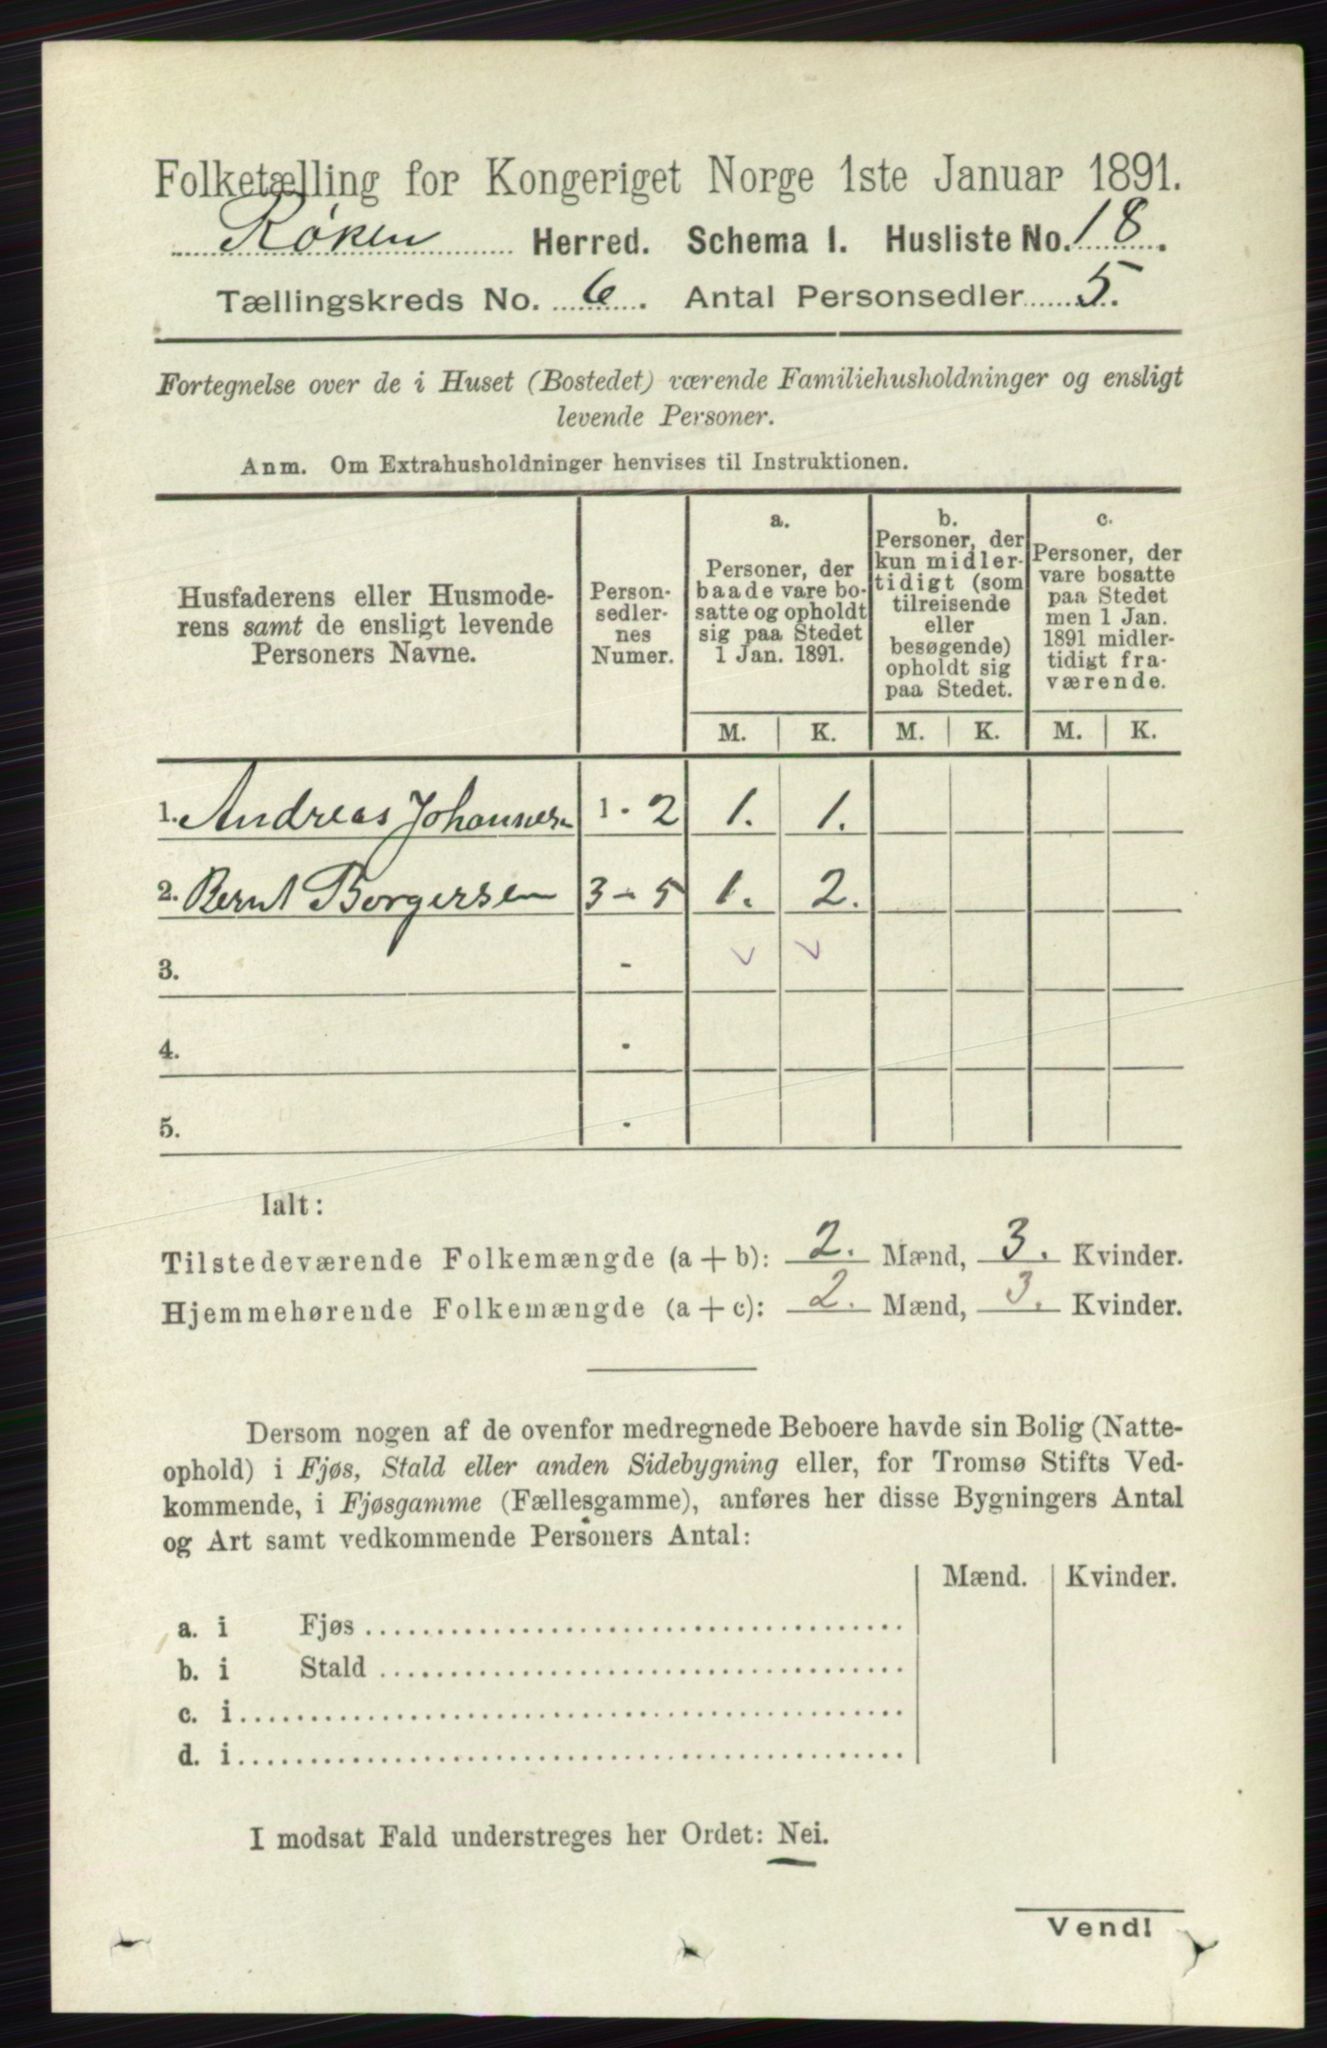 Folketælling for Kongeriget Norge 1ste Januar 1891.
Røken Herred. Schema I. Husliste No. 18.
Tællingskreds No. 6. Antal Personsedler 5.
Fortegnelse over de i Huset (Bostedet) værende Familiehusholdninger og ensligt
levende Personer.
Anm. Om Extrahusholdninger henvises til Instruktionen.
Husfaderens eller Husmode-
rens samt de ensligt levende
Personers Navne.
Person-
sedler-
nes
Numer.
a.
Personer, der
baade vare bo-
satte og opholdt
sig paa Stedet
1 Jan. 1891.
b.
Personer, der
kun midler-
tidigt (som
tilreisende
eller
besøgende)
opholdt sig
paa Stedet.
c.
Personer, der
vare bosatte
paa Stedet
men 1 Jan.
1891 midler-
tidigt fra-
værende.
M. K. M. K. M. K.
1. Andreas Johannesen 1 - 2 1. 1.
2. Bernt Borgersen 3 - 5 1. 2.
3. -
4. -
5. -
Ialt:
Tilstedeværende Folkemængde (a + b): 2. Mænd, 3. Kvinder.
Hjemmehørende Folkemængde (a + c): 2. Mænd, 3. Kvinder.
Dersom nogen af de ovenfor medregnede Beboere havde sin Bolig (Natte-
ophold) i Fjøs, Stald eller anden Sidebygning eller, for Tromsø Stifts Ved-
kommende, i Fjøsgamme (Fællesgamme), anføres her disse Bygningers Antal
og Art samt vedkommende Personers Antal:
Mænd. Kvinder.
a. i Fjøs
b. i Stald
c. i
d. i
I modsat Fald understreges her Ordet: Nei.
Vend!